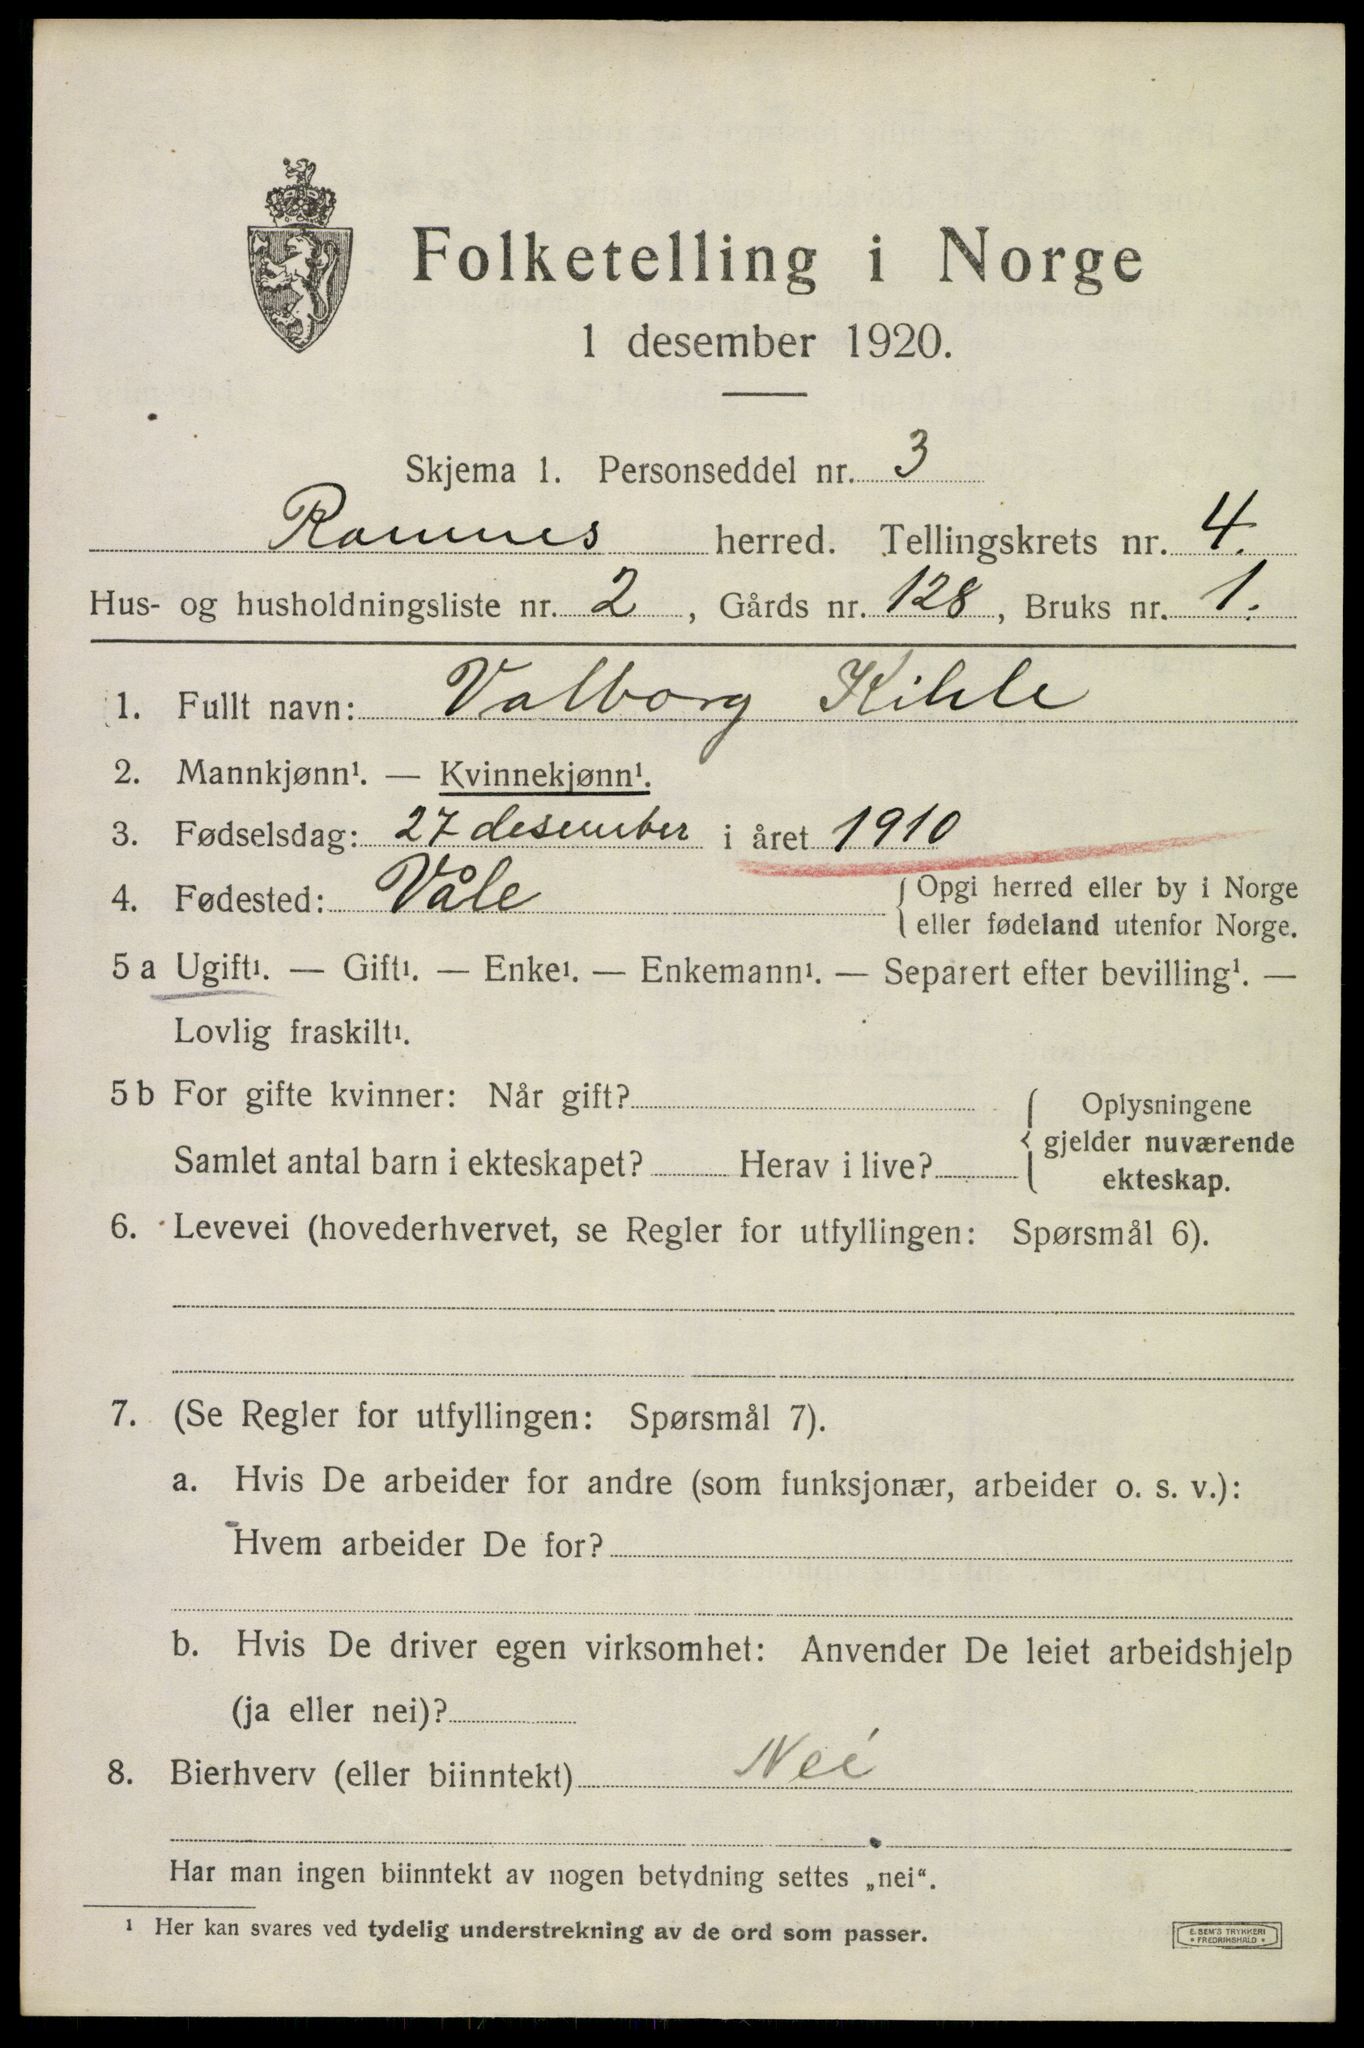 Folketelling i Norge
1 desember 1920.
Skjema 1. Personseddel nr. 3
Ramnes herred. Tellingskrets nr. 4.
Hus- og husholdningsliste nr. 2, Gårds nr. 128, Bruks nr. 1.
1. Fullt navn: Valborg Kihle
2. Mannkjønn¹. — Kvinnekjønn¹.
3. Fødselsdag: 27 desember i året 1910
4. Fødested: Våle { Opgi herred eller by i Norge
eller fødeland utenfor Norge.
5 a Ugift¹. — Gift¹. — Enke¹. — Enkemann¹. — Separert efter bevilling¹. —
Lovlig fraskilt¹.
5 b For gifte kvinner: Når gift?
Samlet antal barn i ekteskapet? Herav i live?
{ Oplysningene
gjelder nuværende
ekteskap.
6. Levevei (hovederhvervet, se Regler for utfyllingen: Spørsmål 6).
7. (Se Regler for utfyllingen: Spørsmål 7).
a. Hvis De arbeider for andre (som funksjonær, arbeider o. s. v.):
Hvem arbeider De for?
b. Hvis De driver egen virksomhet: Anvender De leiet arbeidshjelp
(ja eller nei)?
8. Bierhverv (eller biinntekt) Nei
Har man ingen biinntekt av nogen betydning settes „nei“.
¹ Her kan svares ved tydelig understrekning av de ord som passer.
E. SEM'S TRYKKERI
• FREDRIKSHALD •